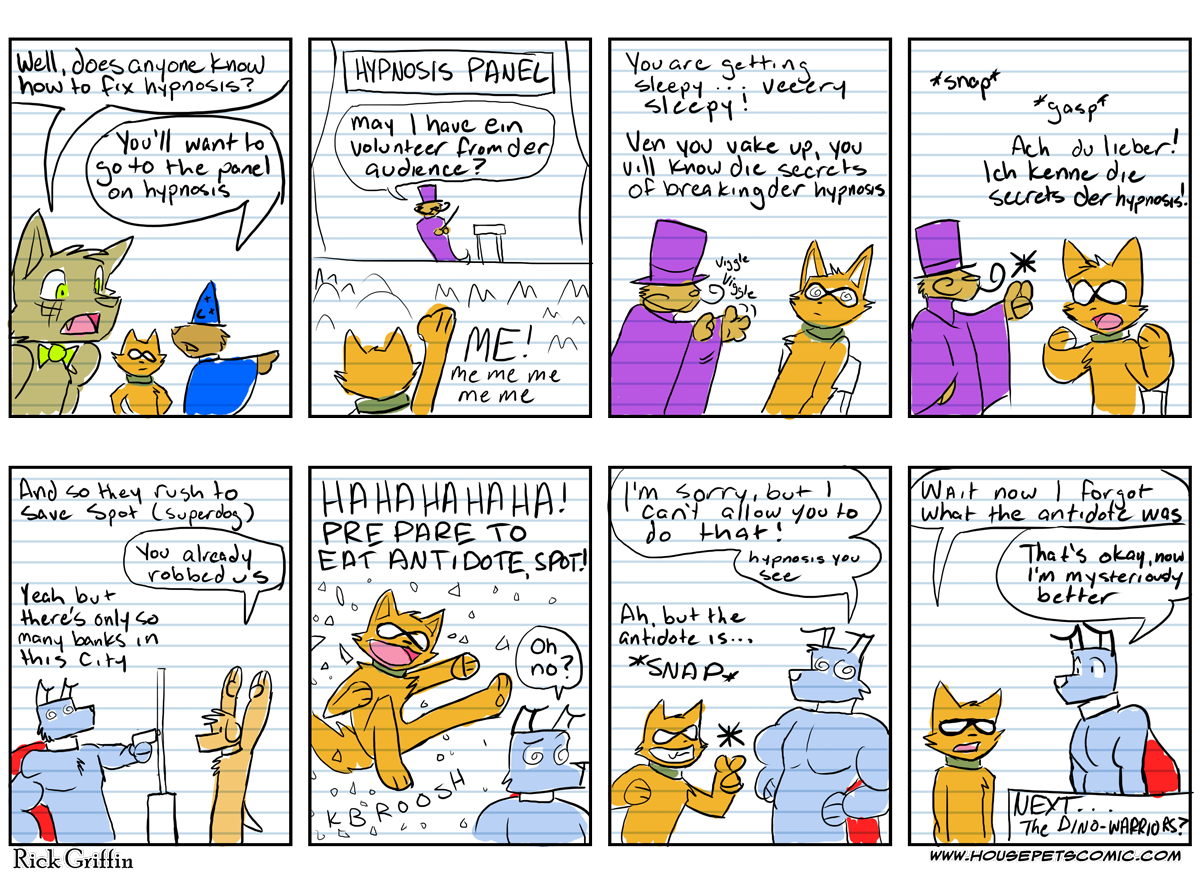 Well, does anyone know
how to fix hypnosis?
You'll want to
go to the panel
on hypnosis
HYPNOSIS PANEL
may I have ein
volunteer from der
audience?
ME!
me me me
me me
You are getting
sleepy... veeery
sleepy!
Ven you vake up, you
vill know die secrets
of breaking der hypnosis
Viggle
Viggle
*snap*
*gasp*
Ach du lieber!
Ich kenne die
secrets der hypnosis!
And so they rush to
save Spot (superdog)
You already
robbed us
Yeah but
there's only so
many banks in
this city
HA HA HA HA HA!
PREPARE TO
EAT ANTIDOTE, SPOT!
Oh
no?
KBROOSH
I'm sorry, but I
can't allow you to
do that!
hypnosis you
see
Ah, but the
antidote is...
*SNAP*
Wait now I forgot
what the antidote was
That's okay, now
I'm mysteriously
better
NEXT...
The DINO-WARRIORS?
Rick Griffin
WWW.HOUSEPETSCOMIC.COM